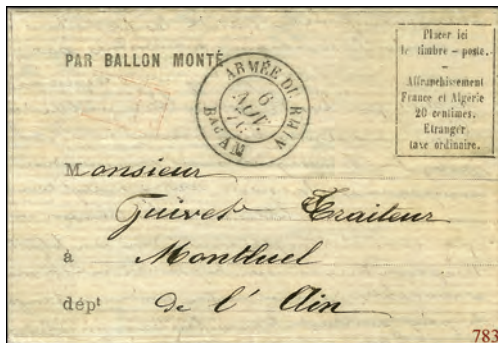 PAR BALLON MONTÉ
ARMÉE DU RHIN
6
AOU.
70
BAU AM
Placer ici
le timbre – poste.
–
Affranchissement
France et Algérie
20 centimes.
Etranger
taxe ordinaire.
Monsieur
Guivet Traiteur
à Montluel
dépt de l' Ain
783